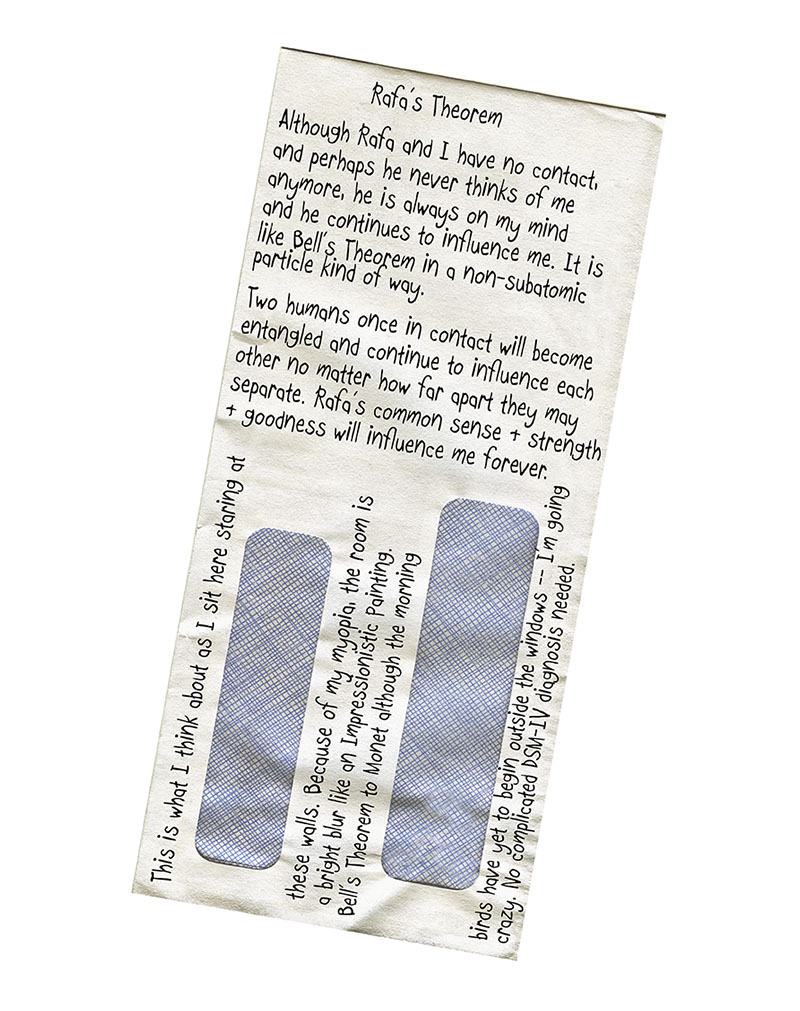 Rafa's Theorem
Although Rafa and I have no contact,
and perhaps he never thinks of me
anymore, he is always on my mind
and he continues to influence me. It is
like Bell's Theorem in a non-subatomic
particle kind of way.
Two humans once in contact will become
entangled and continue to influence each
other no matter how far apart they may
separate. Rafa's common sense + strength
+ goodness will influence me forever.
This is what I think about as I sit here staring at
these walls. Because of my myopia, the room is
a bright blur like an Impressionistic Painting.
Bell's Theorem to Monet although the morning
birds have yet to begin outside the windows -- I'm going
crazy. No complicated DSM-IV diagnosis needed.